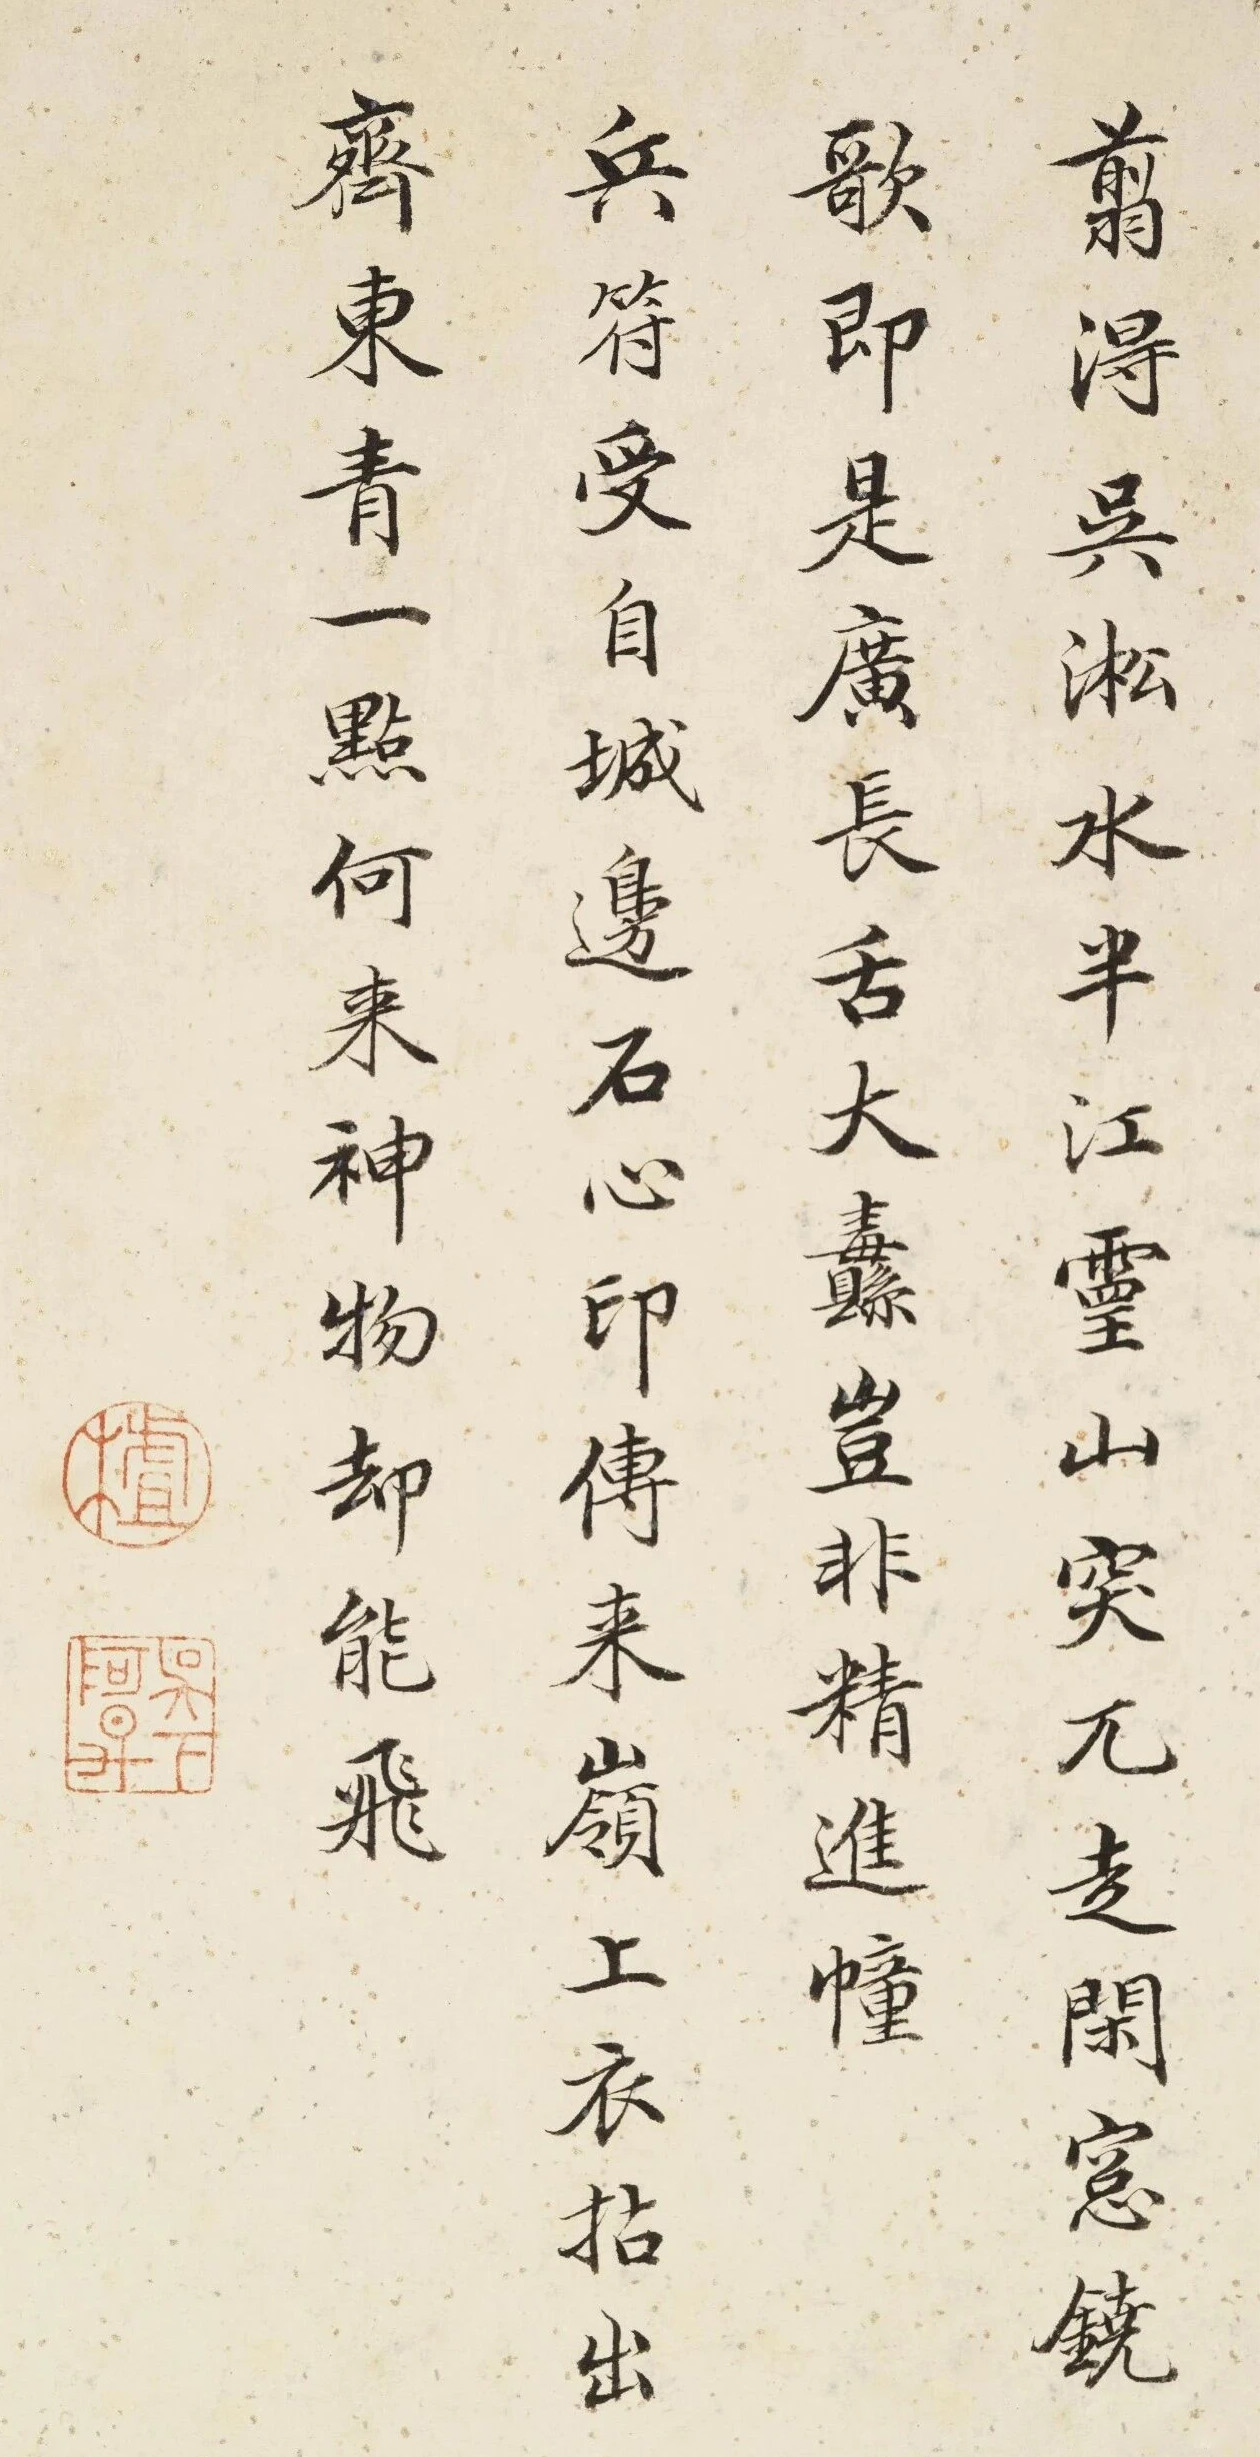 翦得吳淞水半江靈山突兀走閑窓鐃
歌即是廣長舌大纛豈非精進幢
兵符受自城邊石心印傳来嶺上衣拈出
齊東青一點何来神物却能飛
吳下阿